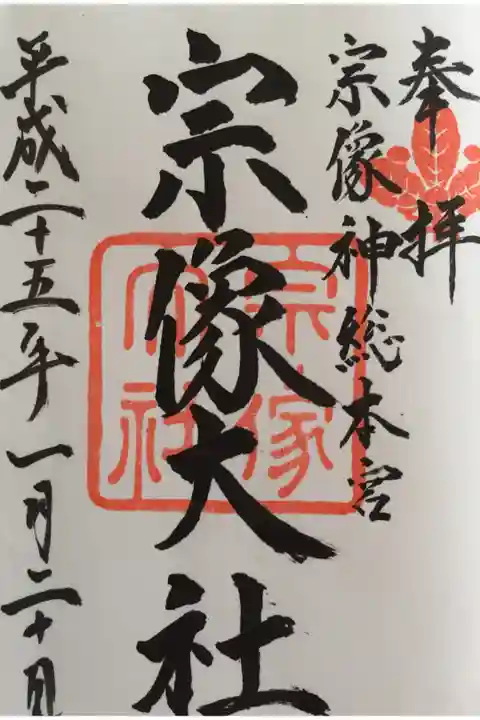 奉拝
宗像神総本宮
宗像大社
平成二十五年一月二十日
宗像
大社